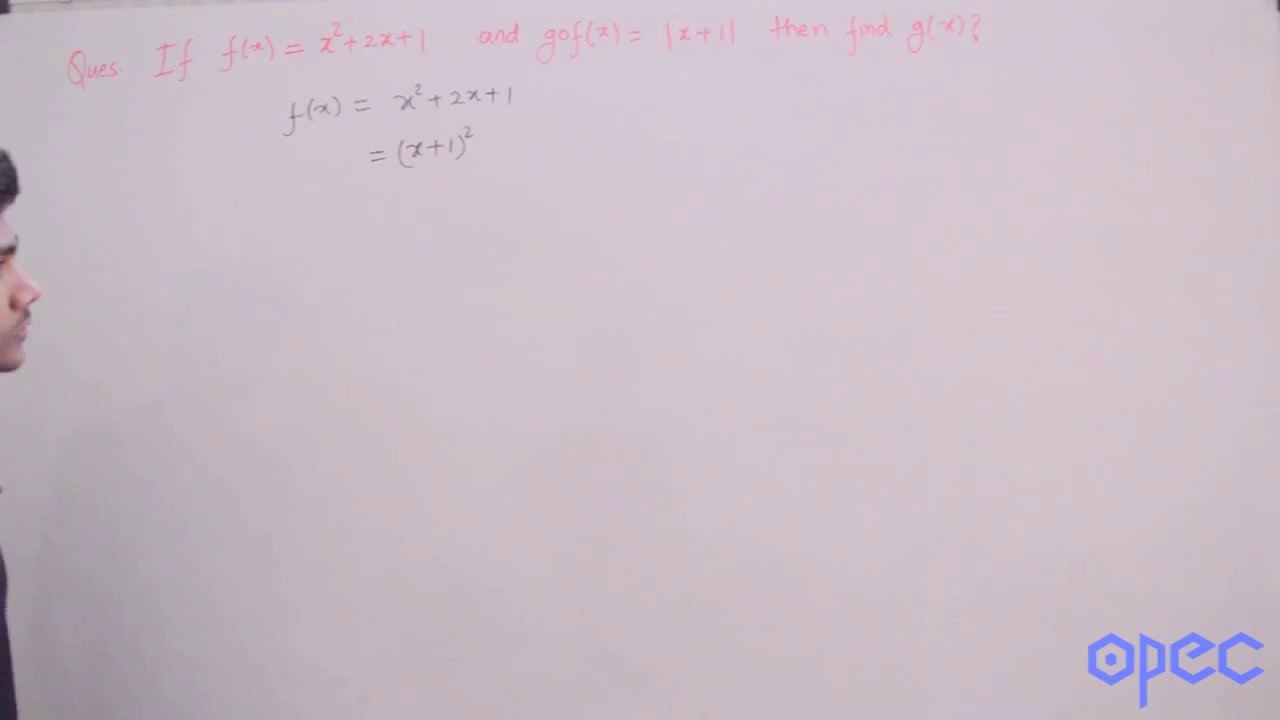 Ques. If f(x) = x²+2x+1 and gof(x) = |x+1| then find g(x)?
f(x) = x²+2x+1
= (x+1)²
opec